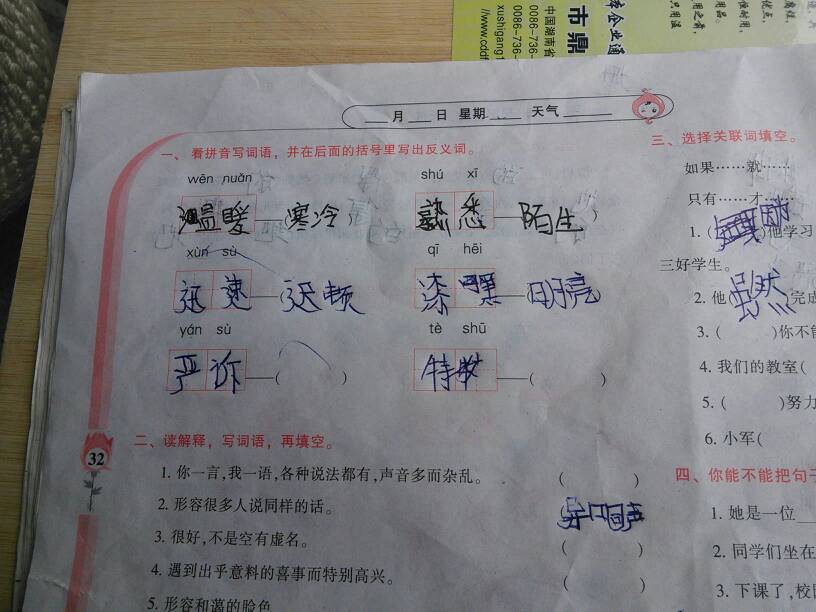 ____月____日 星期____ 天气____
一、看拼音写词语,并在后面的括号里写出反义词。
wēn nuǎn
温暖—寒冷)
shú xī
熟悉—陌生)
xùn sù
迅速—迟顿
qī hēi
漆嘿—明亮
yán sù
严诉—( )
tè shū
特—( )
二、读解释,写词语,再填空。
1. 你一言,我一语,各种说法都有,声音多而杂乱。 ( )
2. 形容很多人说同样的话。
3. 很好,不是空有虚名。 ( )
4. 遇到出乎意料的喜事而特别高兴。 ( )
5. 形容和蔼的脸色
32
三、选择关联词填空。
如果……就……
只有……才……
1. ( )他学习
三好学生。
2. 他(虽然)完成
3. ( )你不能
4. 我们的教室(
5. ( )努力
6. 小军(
四、你能不能把句子
1. 她是一位__
2. 同学们坐在
3. 下课了,校园
市鼎
中国湖南省
0086-736-
0086-736-
xushigang1
//www.cddf